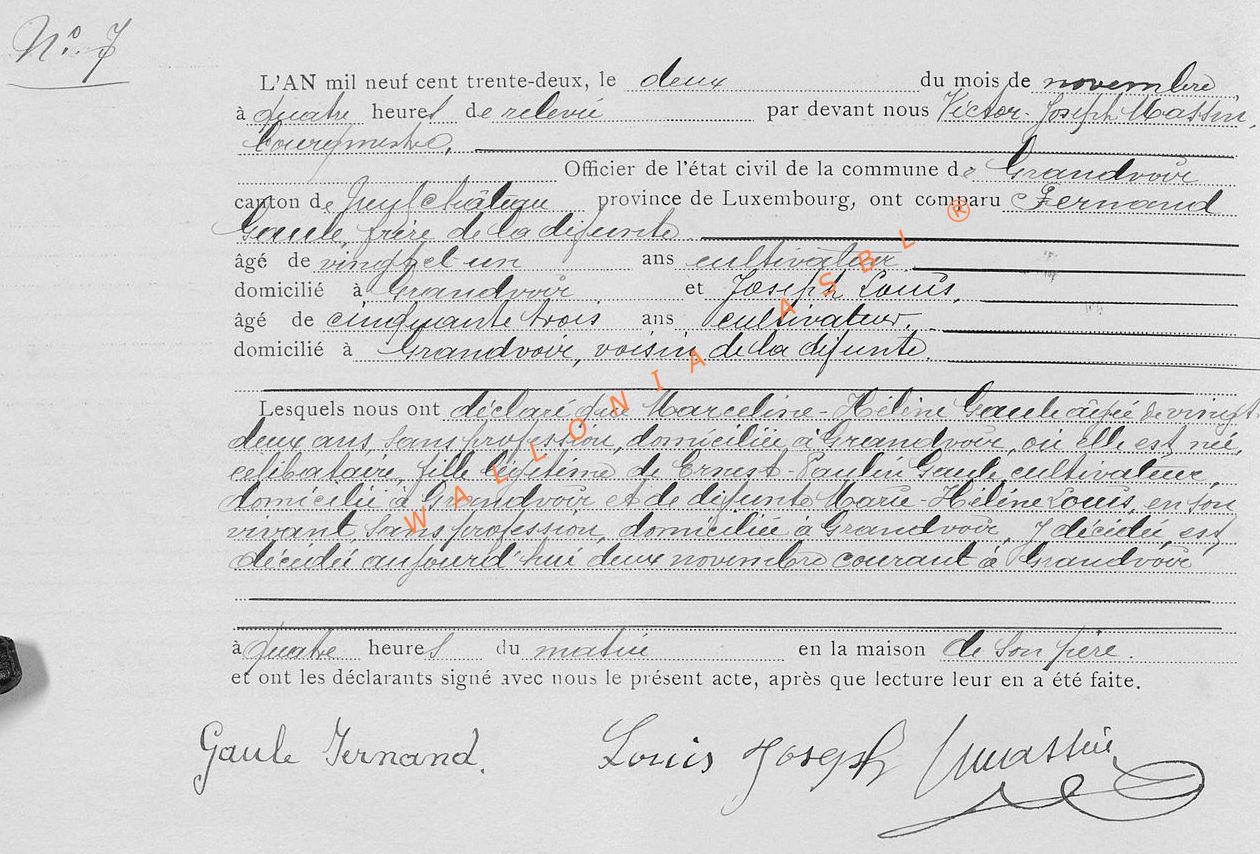 N° 7
L'AN mil neuf cent trente-deux, le deux du mois de novembre
à quatre heures de relevée par devant nous Victor-Joseph Massin,
bourgmestre,
Officier de l'état civil de la commune de Grandvoir
canton de Neufchâteau province de Luxembourg, ont comparu Fernand
Gaule, frère de la défunte
âgé de vingt et un ans cultivateur
domicilié à Grandvoir et Joseph Louis,
âgé de cinquante trois ans cultivateur,
domicilié à Grandvoir, voisin de la défunte.
Lesquels nous ont déclaré que Marceline-Hélène Gaule âgée de vingt
deux ans, sans profession, domiciliée à Grandvoir, où elle est née,
célibataire, fille légitime de Ernest-Paulin Gaule, cultivateur,
domicilié à Grandvoir et de défunte Marie-Hélène Louis, en son
vivant, sans profession, domiciliée à Grandvoir, y décédée, est
décédée aujourd'hui deux novembre courant à Grandvoir
à quatre heures du matin en la maison de son père.
et ont les déclarants signé avec nous le présent acte, après que lecture leur en a été faite.
Gaule Fernand. Louis Joseph VMassin
WALLONIA ASBL ®